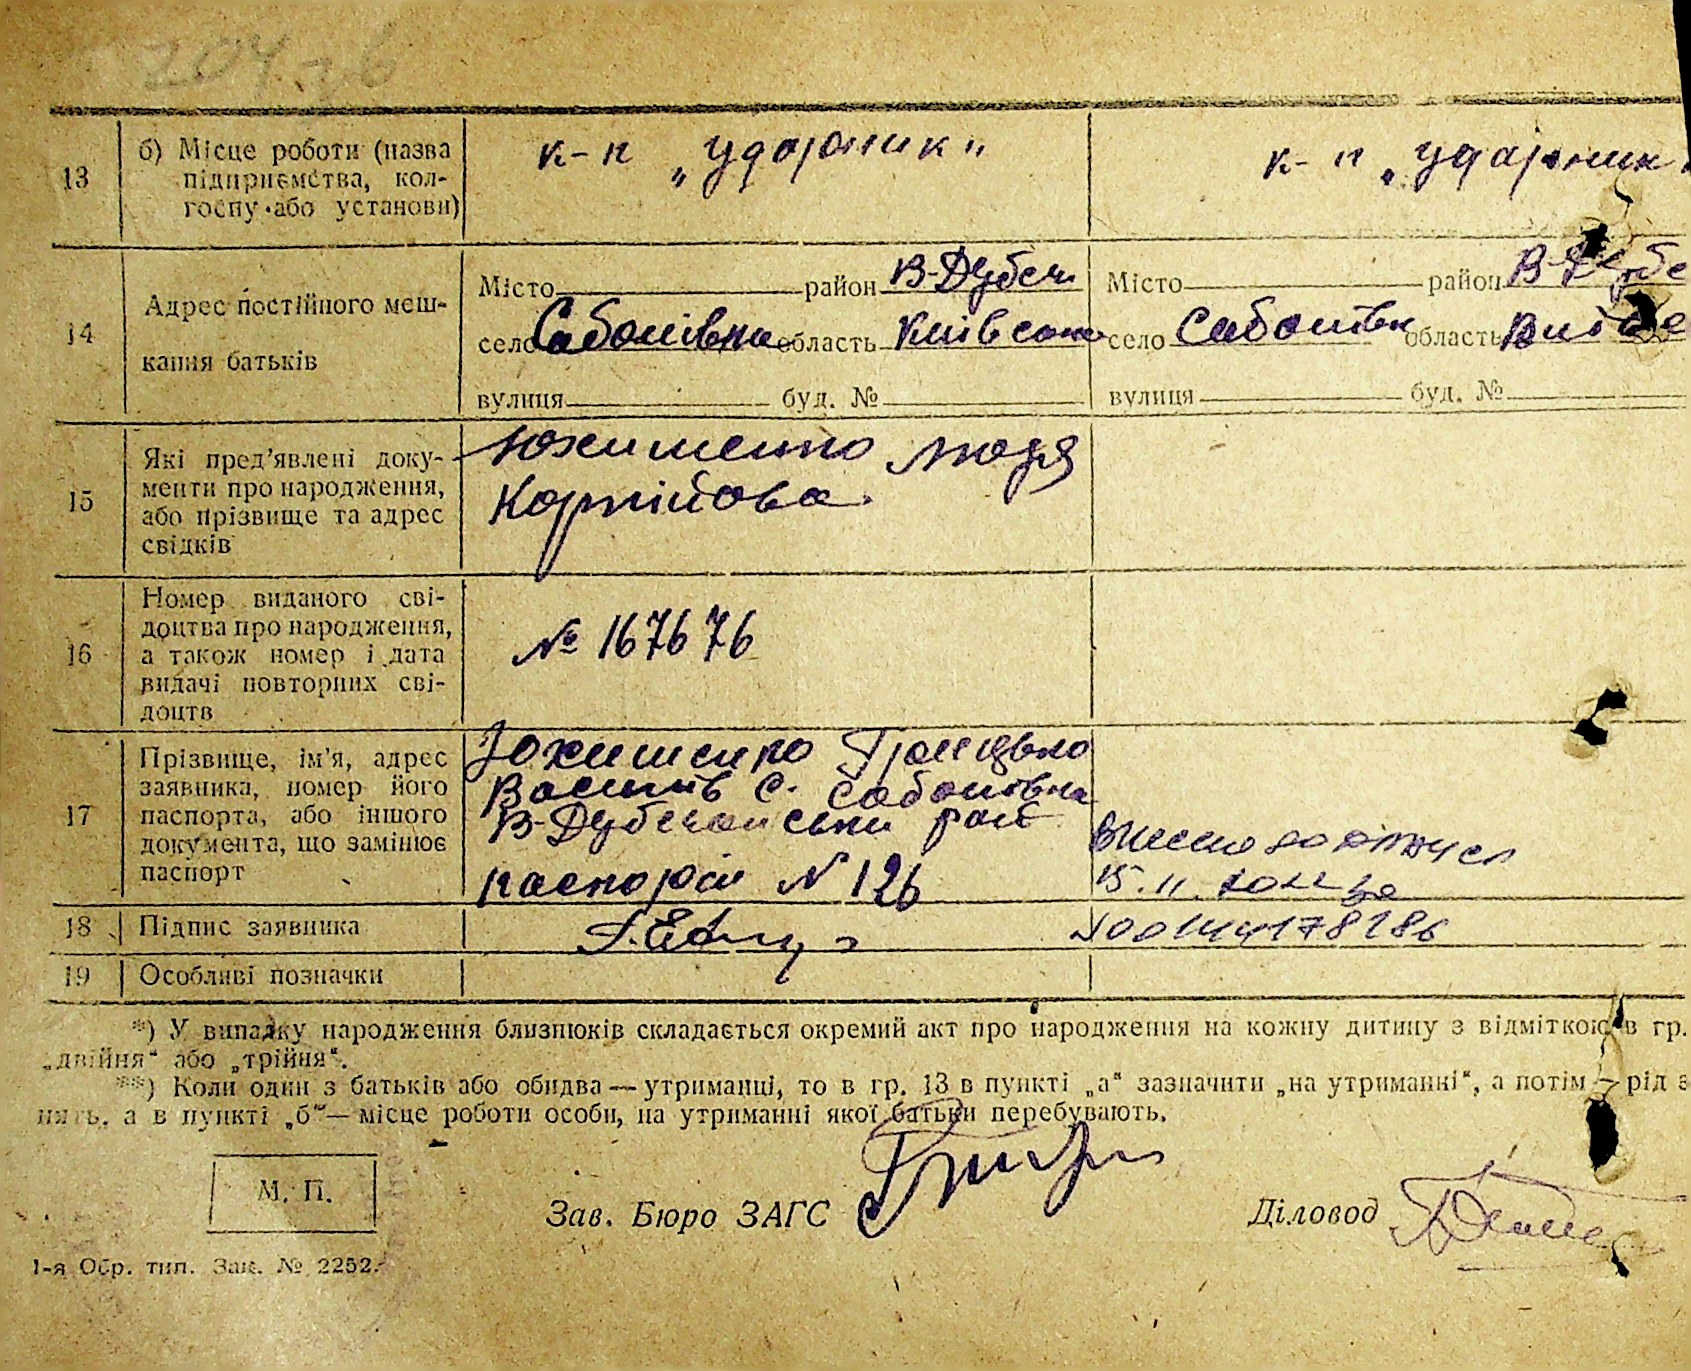 204 зв
13
б) Місце роботи (назва
підприємства, кол-
госпу або установи)
к-п „ударник"
к-п „ударник
14
Адрес постійного меш-
кання батьків
Місто район В-Дубеч
село Саболівка область Київська
вулиця буд. №
Місто район В-Дубе
село Саболівк область
вулиця буд. №
15
Які пред'явлені доку-
менти про народження,
або прізвище та адрес
свідків
Юхименко
Корнійова
16
Номер виданого сві-
доцтва про народження,
а також номер і дата
видачі повторних сві-
доцтв
№ 167676
17
Прізвище, ім'я, адрес
заявника, номер його
паспорта, або іншого
документа, що замінює
паспорт
Юхименко Грицько
Василів с. Саболівка
В-Дубечанськи рай
паспорт N 126
15.11.
18
Підпис заявника
00144178286
19
Особливі позначки
*) У випадку народження близнюків складається окремий акт про народження на кожну дитину з відміткою в гр.
„двійня“ або „трійня“.
**) Коли один з батьків або обидва — утриманці, то в гр. 13 в пункті „а“ зазначити „на утриманні“, а потім — рід з
нять, а в пункті „б“ — місце роботи особи, на утриманні якої батьки перебувають.
М. П.
Зав. Бюро ЗАГС
Діловод
1-я Обр. тип. Зак. № 2252.